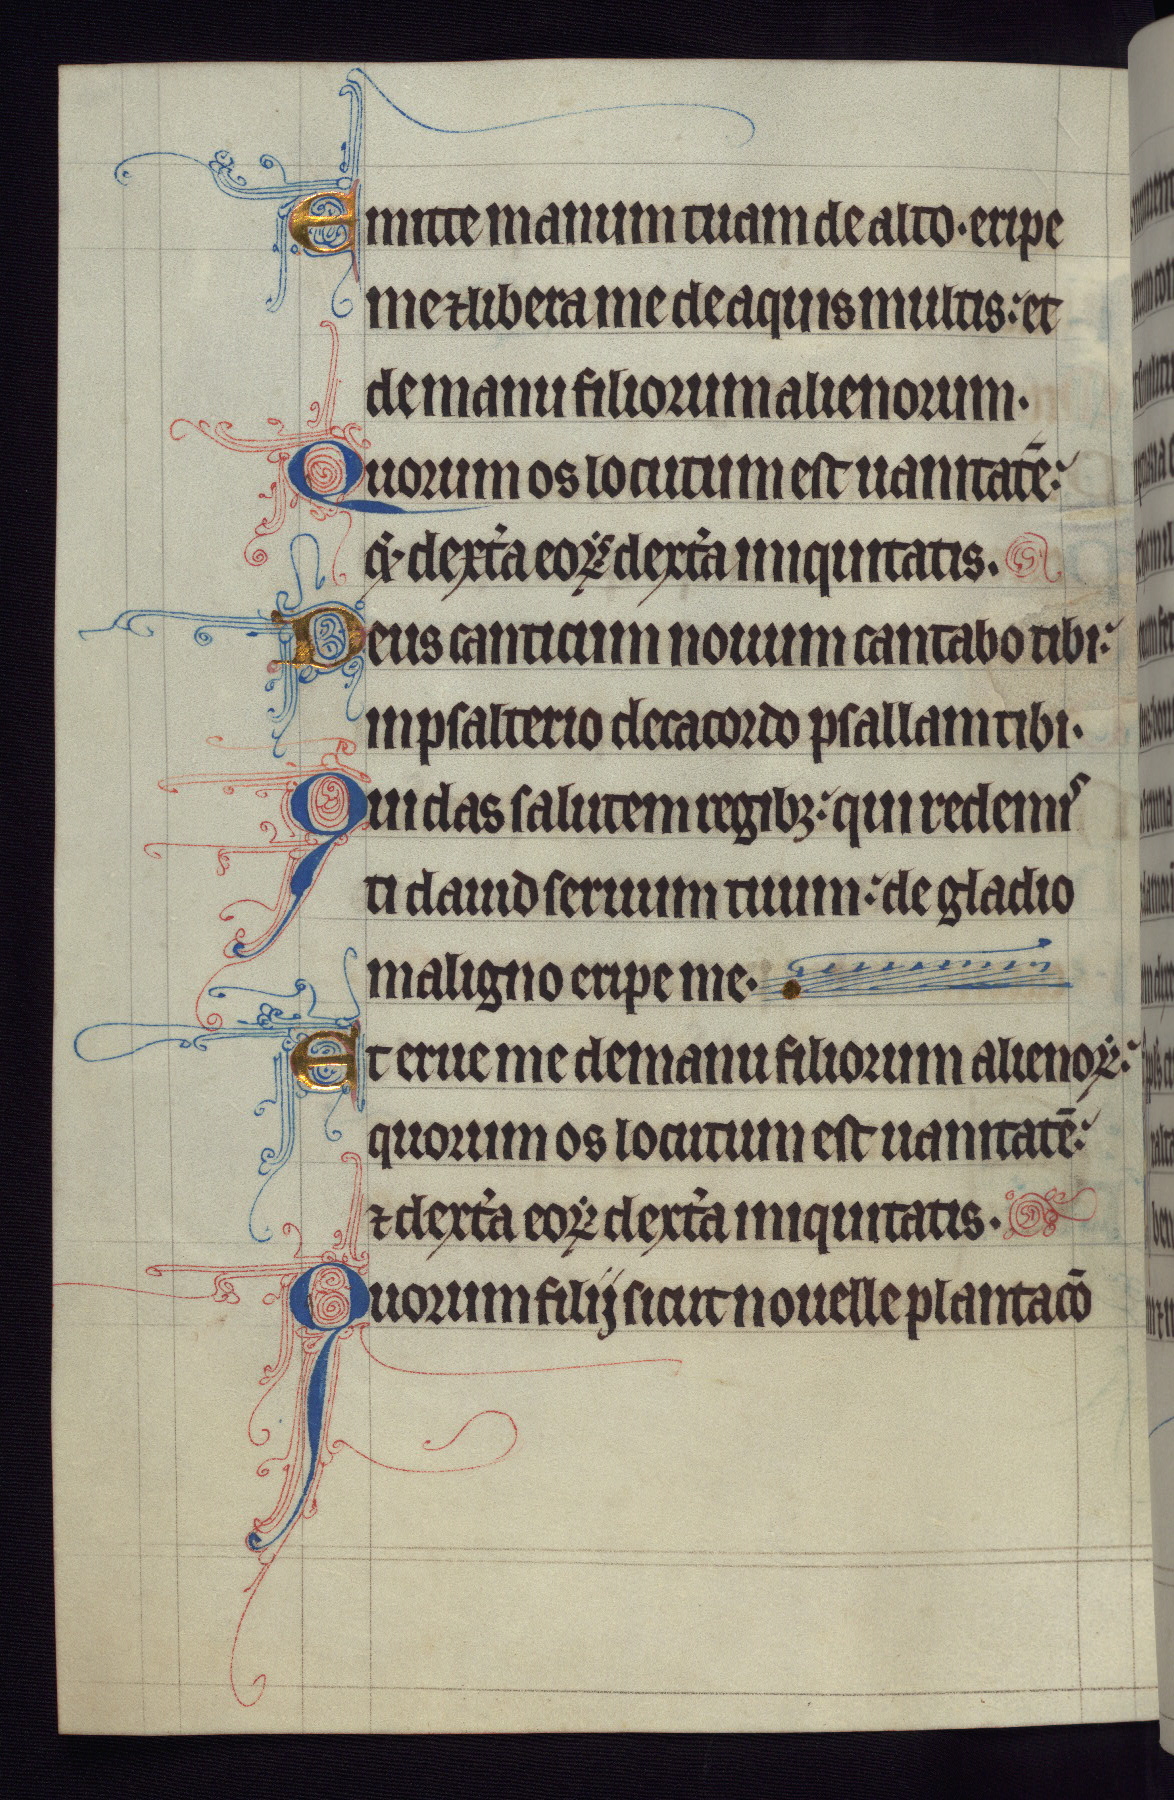 Emitte manum tuam de alto· eripe
me ⁊ libera me de aquis multis: et
de manu filiorum alienorum·
Quorum os locutum est uanitatē:
⁊ dext̾a eoꝝ dext̾a iniquitatis.
Deus canticum nouum cantabo tibi:
in psalterio decacordo psallam tibi·
Qui das salutem regibꝫ: qui redemis
ti dauid seruum tuum: de gladio
maligno eripe me·
Et erue me de manu filiorum alienoꝝ:
quorum os locutum est uanitatē:
⁊ dext̾a eoꝝ dext̾a iniquitatis·
Quorum filij sicut nouelle plantacō